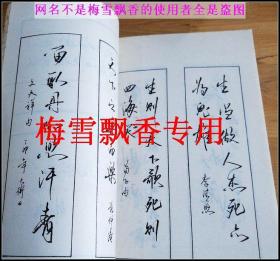 网名不是梅雪飘香的使用者全是盗图
生当做人杰死亦
为鬼雄
李清照
生则天下歌死则
四海哭
留取丹心照汗青
文天祥句
梅雪飘香专用